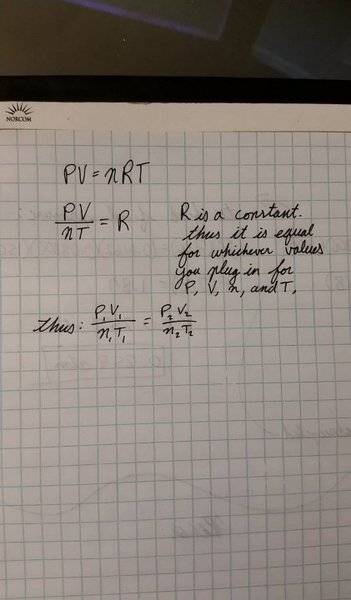 NORCOM
PV = nRT
PV/nT = R
R is a constant.
thus it is equal
for whichever values
you plug in for
P, V, n, and T.
thus: P₁V₁/n₁T₁ = P₂V₂/n₂T₂